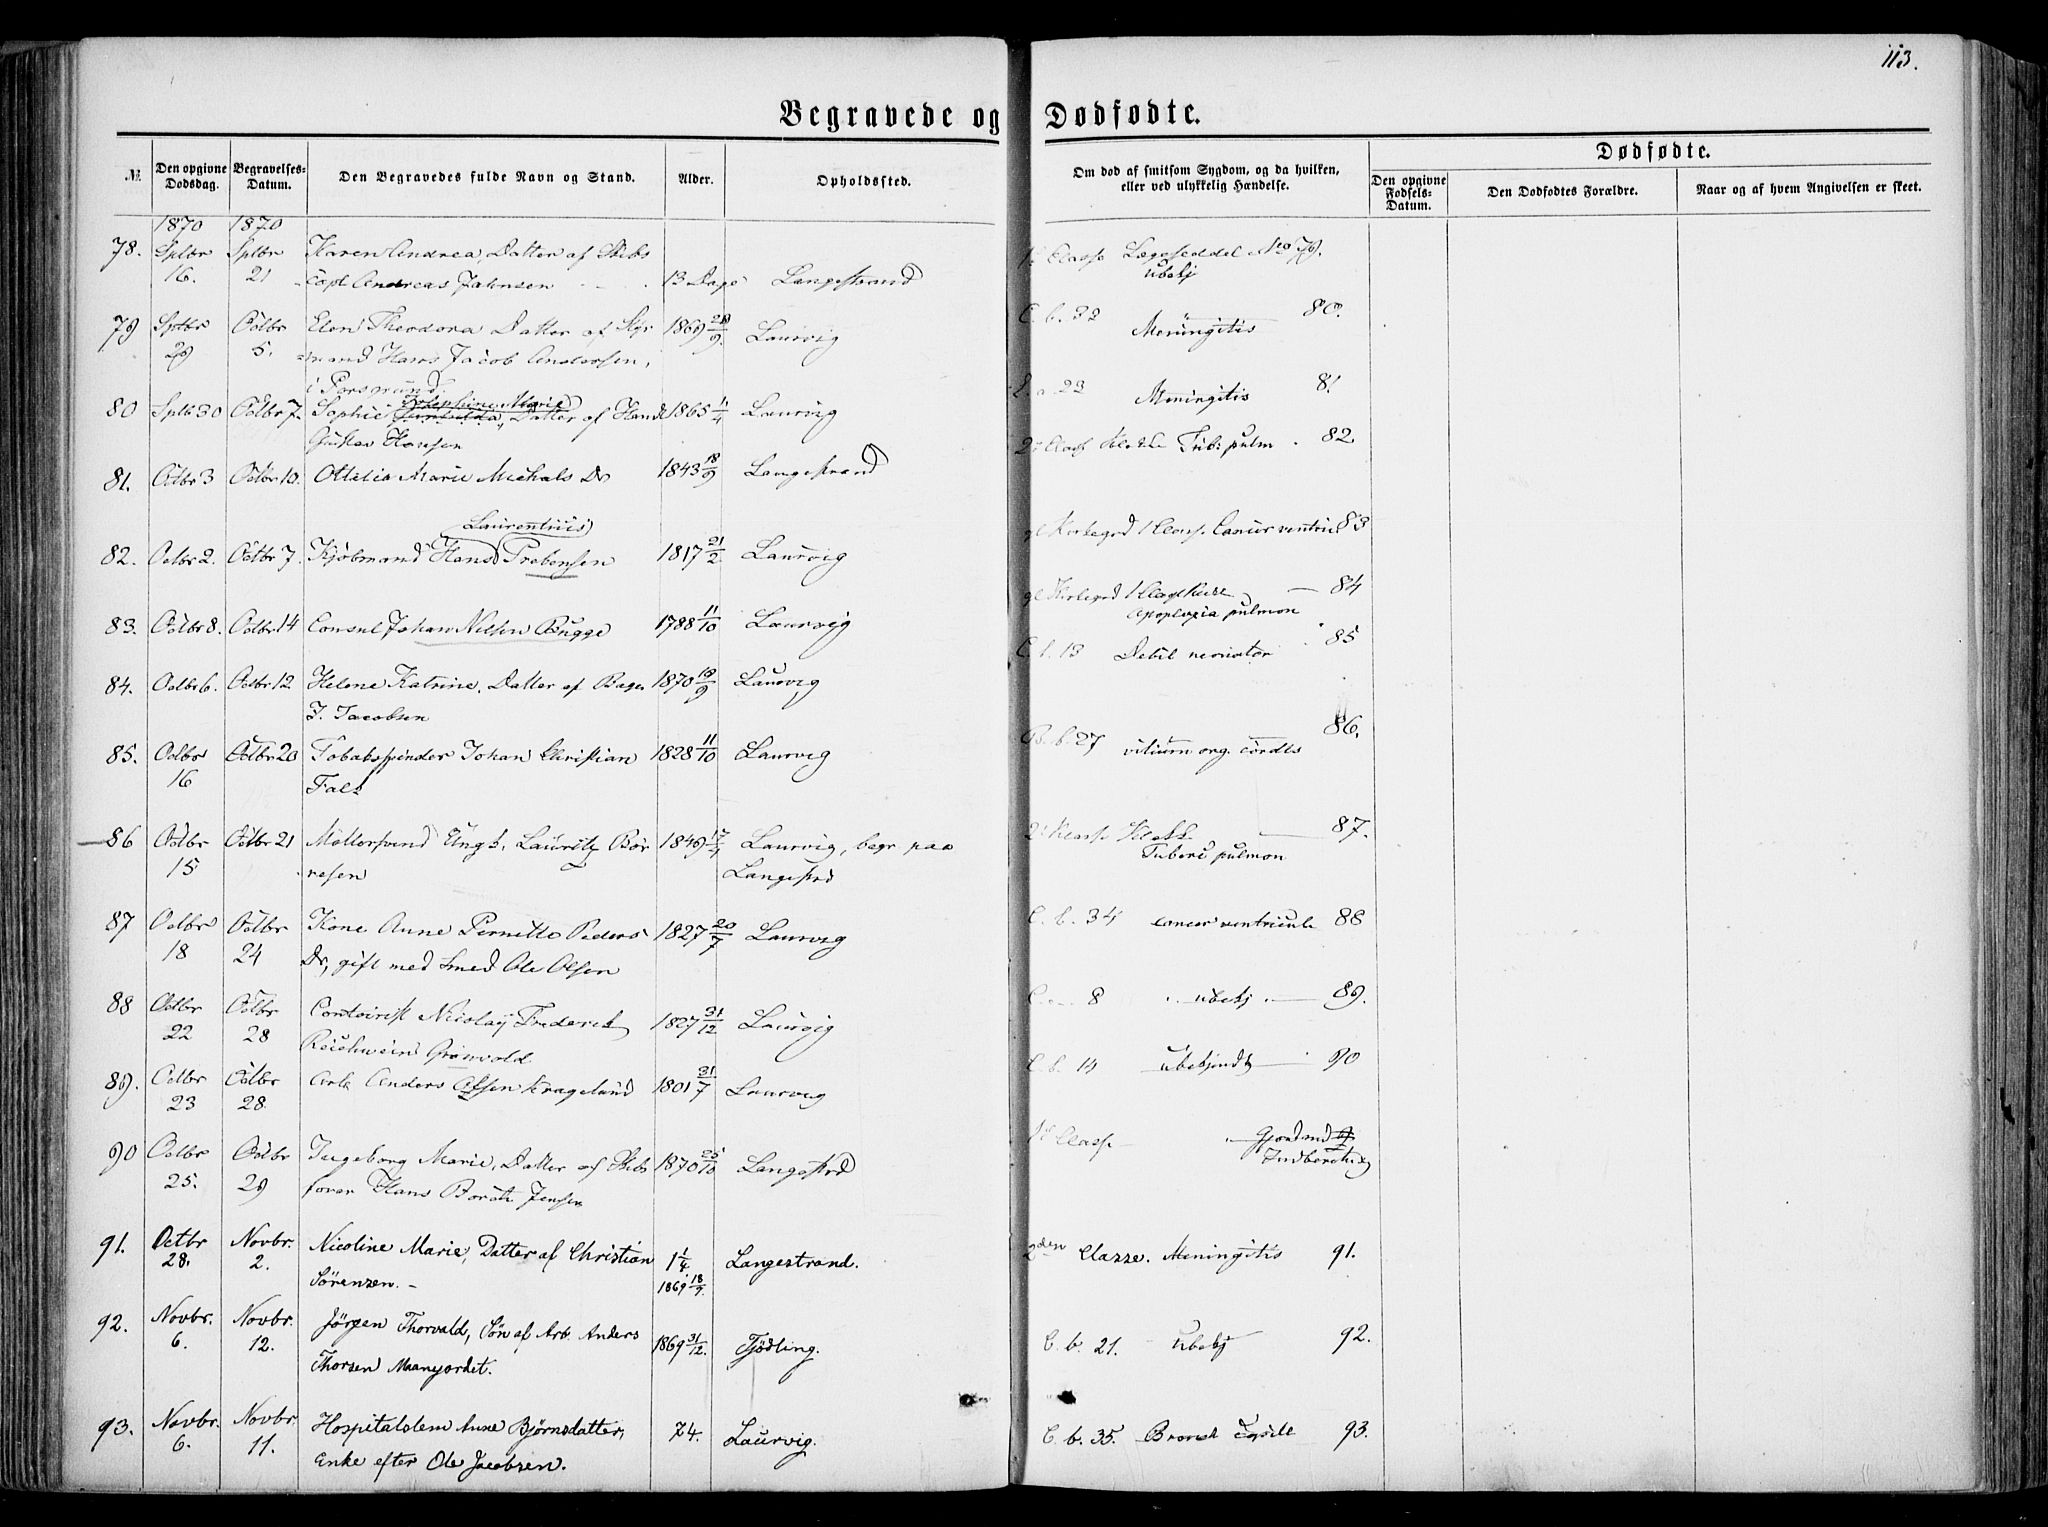 113.
Begravede og Dødfødte.
№ Den opgivne Dødsdag. Begravelses-Datum. Den Begravedes fulde Navn og Stand. Alder. Opholdssted. Om død af smitsom Sygdom, og da hvilken, eller ved ulykkelig Hændelse. Dødfødte.
Den opgivne Fødsels-Datum. Den Dødfødtes Forældre. Naar og af hvem Angivelsen er skeet.
1870 1870
78. Sptbr Sptbr Karen Andrea, Datter af Skibs 1ste Classe Lægeseddel No 79.
16. 21 Capt Andreas Jahnsen 13 Dage Langestrand ubekj
79 Sptbr Octbr Elen Theodora Datter af Styr 1869 29/9 Laurvig C. b. 32 Meningitis 80.
29 5. mand Hans Jacob Andersen,
i Porsgrund.
Josephine Marie
80 Sptb 30 Octbr 7. Sophie Datter af Handl 1865 11/4 Laurvig 23 Meningitis 81
Gustav Hansen
81. Octbr 3 Octbr 10. Ottilia Marie Michals Dr 1843 18/9 Langestrand 2 Class Tub: pulm 82.
Laurentius
82. Octbr 2. Octbr 7. Kjøbmand Hans Prebensen 1817 21/2 Laurvig gl Kirkegrd 1 Class. Cancer ventric 83
83. Octbr 8. Octbr. 14 Consul Johan Nielsen Bugge 1788 11/10 Laurvig gl Kirkegrd 84
Apoplexia pulmon
84. Octbr 6. Octbr 12 Helene Katrine, Datter af Bager 1870 19/9 Laurvig C. b. 13 Debil neonator 85
J. Jacobsen
85. Octbr Octbr 20 Tobakspinder Johan Christian 1828 11/10 Laurvig B. b. 27 vitium org. cordis 86.
16 Falk
86 Octbr Octbr 21 Møllersvend Ungk. Lauritz Bør 1849 17/4 Laurvig, begr. paa 2 Klasse 87.
15 resen Langestrd Tuberc pulmon
87 Octbr Octbr Kone Anne Pernille Peders 1827 20/7 Laurvig C. b. 34 cancer ventricule 88
18 24 Dr, gift med Smed Ole Olsen
88 Octbr Octbr Contoirist Nicolay Frederik 1827 31/12 Laurvig 8 ubekj 89.
22 28 Reichwein Grønvold
89. Octbr Octbr Arb Anders Olsen Kragelund 1801 31/7 Laurvig C. b. 14 ubekjendt 90
23 28
90 Octbr Octbr Ingeborg Marie, Datter af Skibs 1870 25/10 Langestrd 1ste Classe
25. 29 fører Hans Børre Jensen Indberetn
91. Octbr Novbr. Nicoline Marie, Datter af Christian 1 1/4 Langestrand. 2den Classe. Meningitis 91.
28. 2. Sørensen. – 1869 18/7
92. Novbr. Novbr. Jørgen Thorvald, Søn af Arb. Anders 1869 31/12. Tjødling. C. b. 21. ubekj 92.
6. 12. Thorsen Maanejordet.
93. Novbr. Novbr. Hospitalslem Anne Bjørnsdatter, 74. Laurvig. C. b. 35. 93.
6. 11. Enke efter Ole Jacobsen.